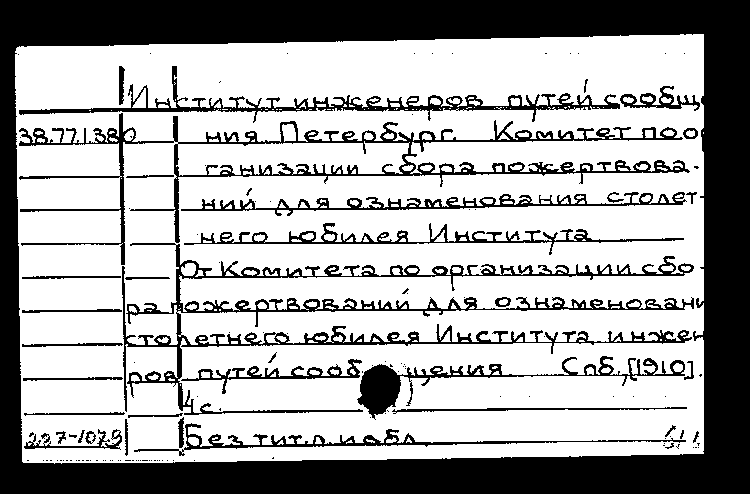 Институт инженеров путей сообще
38.77.1.380 ния Петербург. Комитет по ор
ганизации сбора пожертвова-
ний для ознаменования столет-
него юбилея Института
От Комитета по организации сбо-
ра пожертвований для ознаменовани
столетнего юбилея Института инжен
ров путей сообщения Спб,[1910].
4с.
227-1079 Без тит.л. и обл.